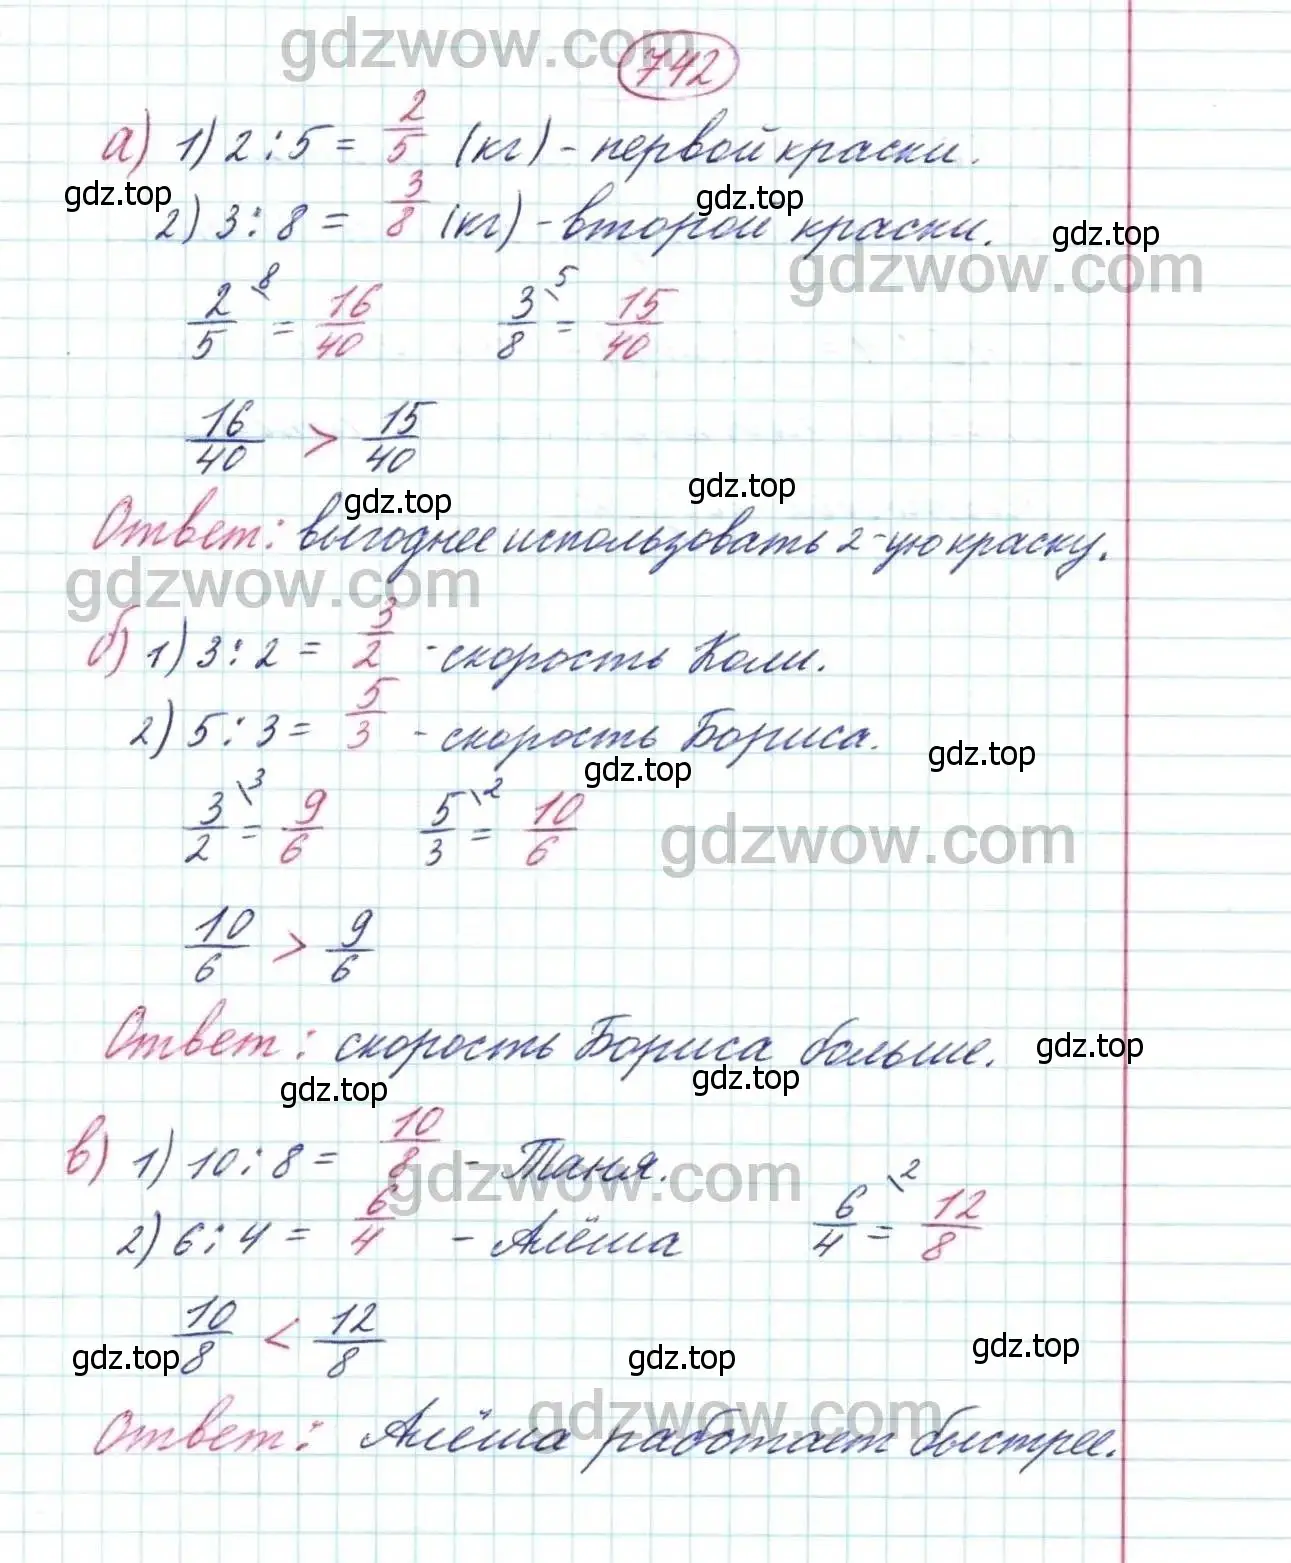 gdzwow.com
742
а) 1) 2 : 5 = 2/5 (кг) - первой краски.
gdz.top gdz.top
2) 3 : 8 = 3/8 (кг) - второй краски.
gdz.top
gdzwow.com
2/5 \8 = 16/40 3/8 \5 = 15/40
16/40 > 15/40
gdz.top gdz.top
Ответ: выгоднее использовать 2-ую краску.
gdzwow.com
б) 1) 3 : 2 = 3/2 - скорость Коли.
2) 5 : 3 = 5/3 - скорость Бориса.
gdz.top gdz.top
3/2 \3 = 9/6 5/3 \2 = 10/6
gdzwow.com
10/6 > 9/6
Ответ: скорость Бориса больше.
gdz.top
gdz.top gdz.top
в) 1) 10 : 8 = 10/8 - Таня.
gdzwow.com
2) 6 : 4 = 6/4 - Алёша 6/4 \2 = 12/8
10/8 < 12/8
gdz.top gdz.top gdz.top
gdzwow.com
Ответ: Алёша работает быстрее.